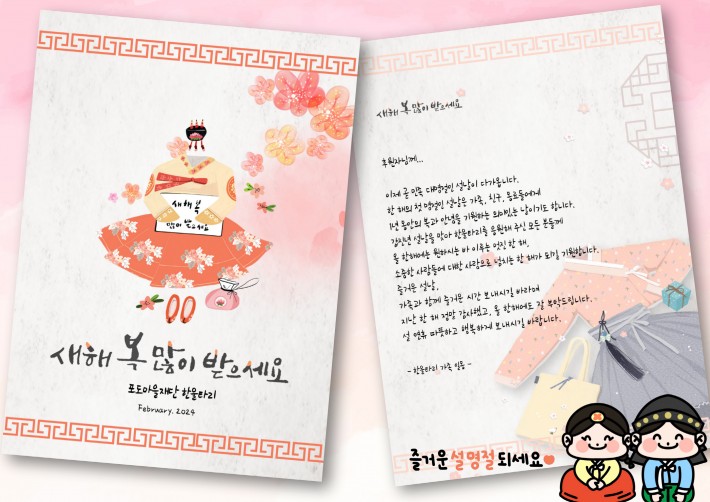 새해 복
많이 받으세요
새해 복 많이 받으세요
포도마을재단 한울타리
February. 2024
새해 복 많이 받으세요
후원자님께...
이제 곧 민족 대명절인 설날이 다가옵니다.
한 해의 첫 명절인 설날은 가족, 친구, 동료들에게
1년 동안의 복과 안녕을 기원하는 의미있는 날이기도 합니다.
갑진년 설날을 맞아 한울타리를 응원해 주신 모든 분들께
올 한해에는 원하시는 바 이루는 멋진 한 해,
소중한 사람들에 대한 사랑으로 넘치는 한 해가 되길 기원합니다.
즐거운 설날,
가족과 함께 즐거운 시간 보내시길 바라며
지난 한 해 정말 감사했고, 올 한해에도 잘 부탁드립니다.
설 연휴 따뜻하고 행복하게 보내시길 바랍니다.
- 한울타리 가족 일동 -
즐거운 설명절 되세요